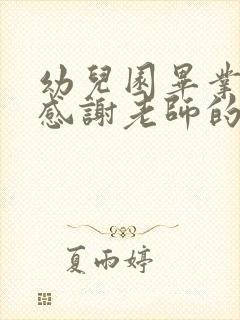 幼兒園畢業
感謝老師的
夏雨婷